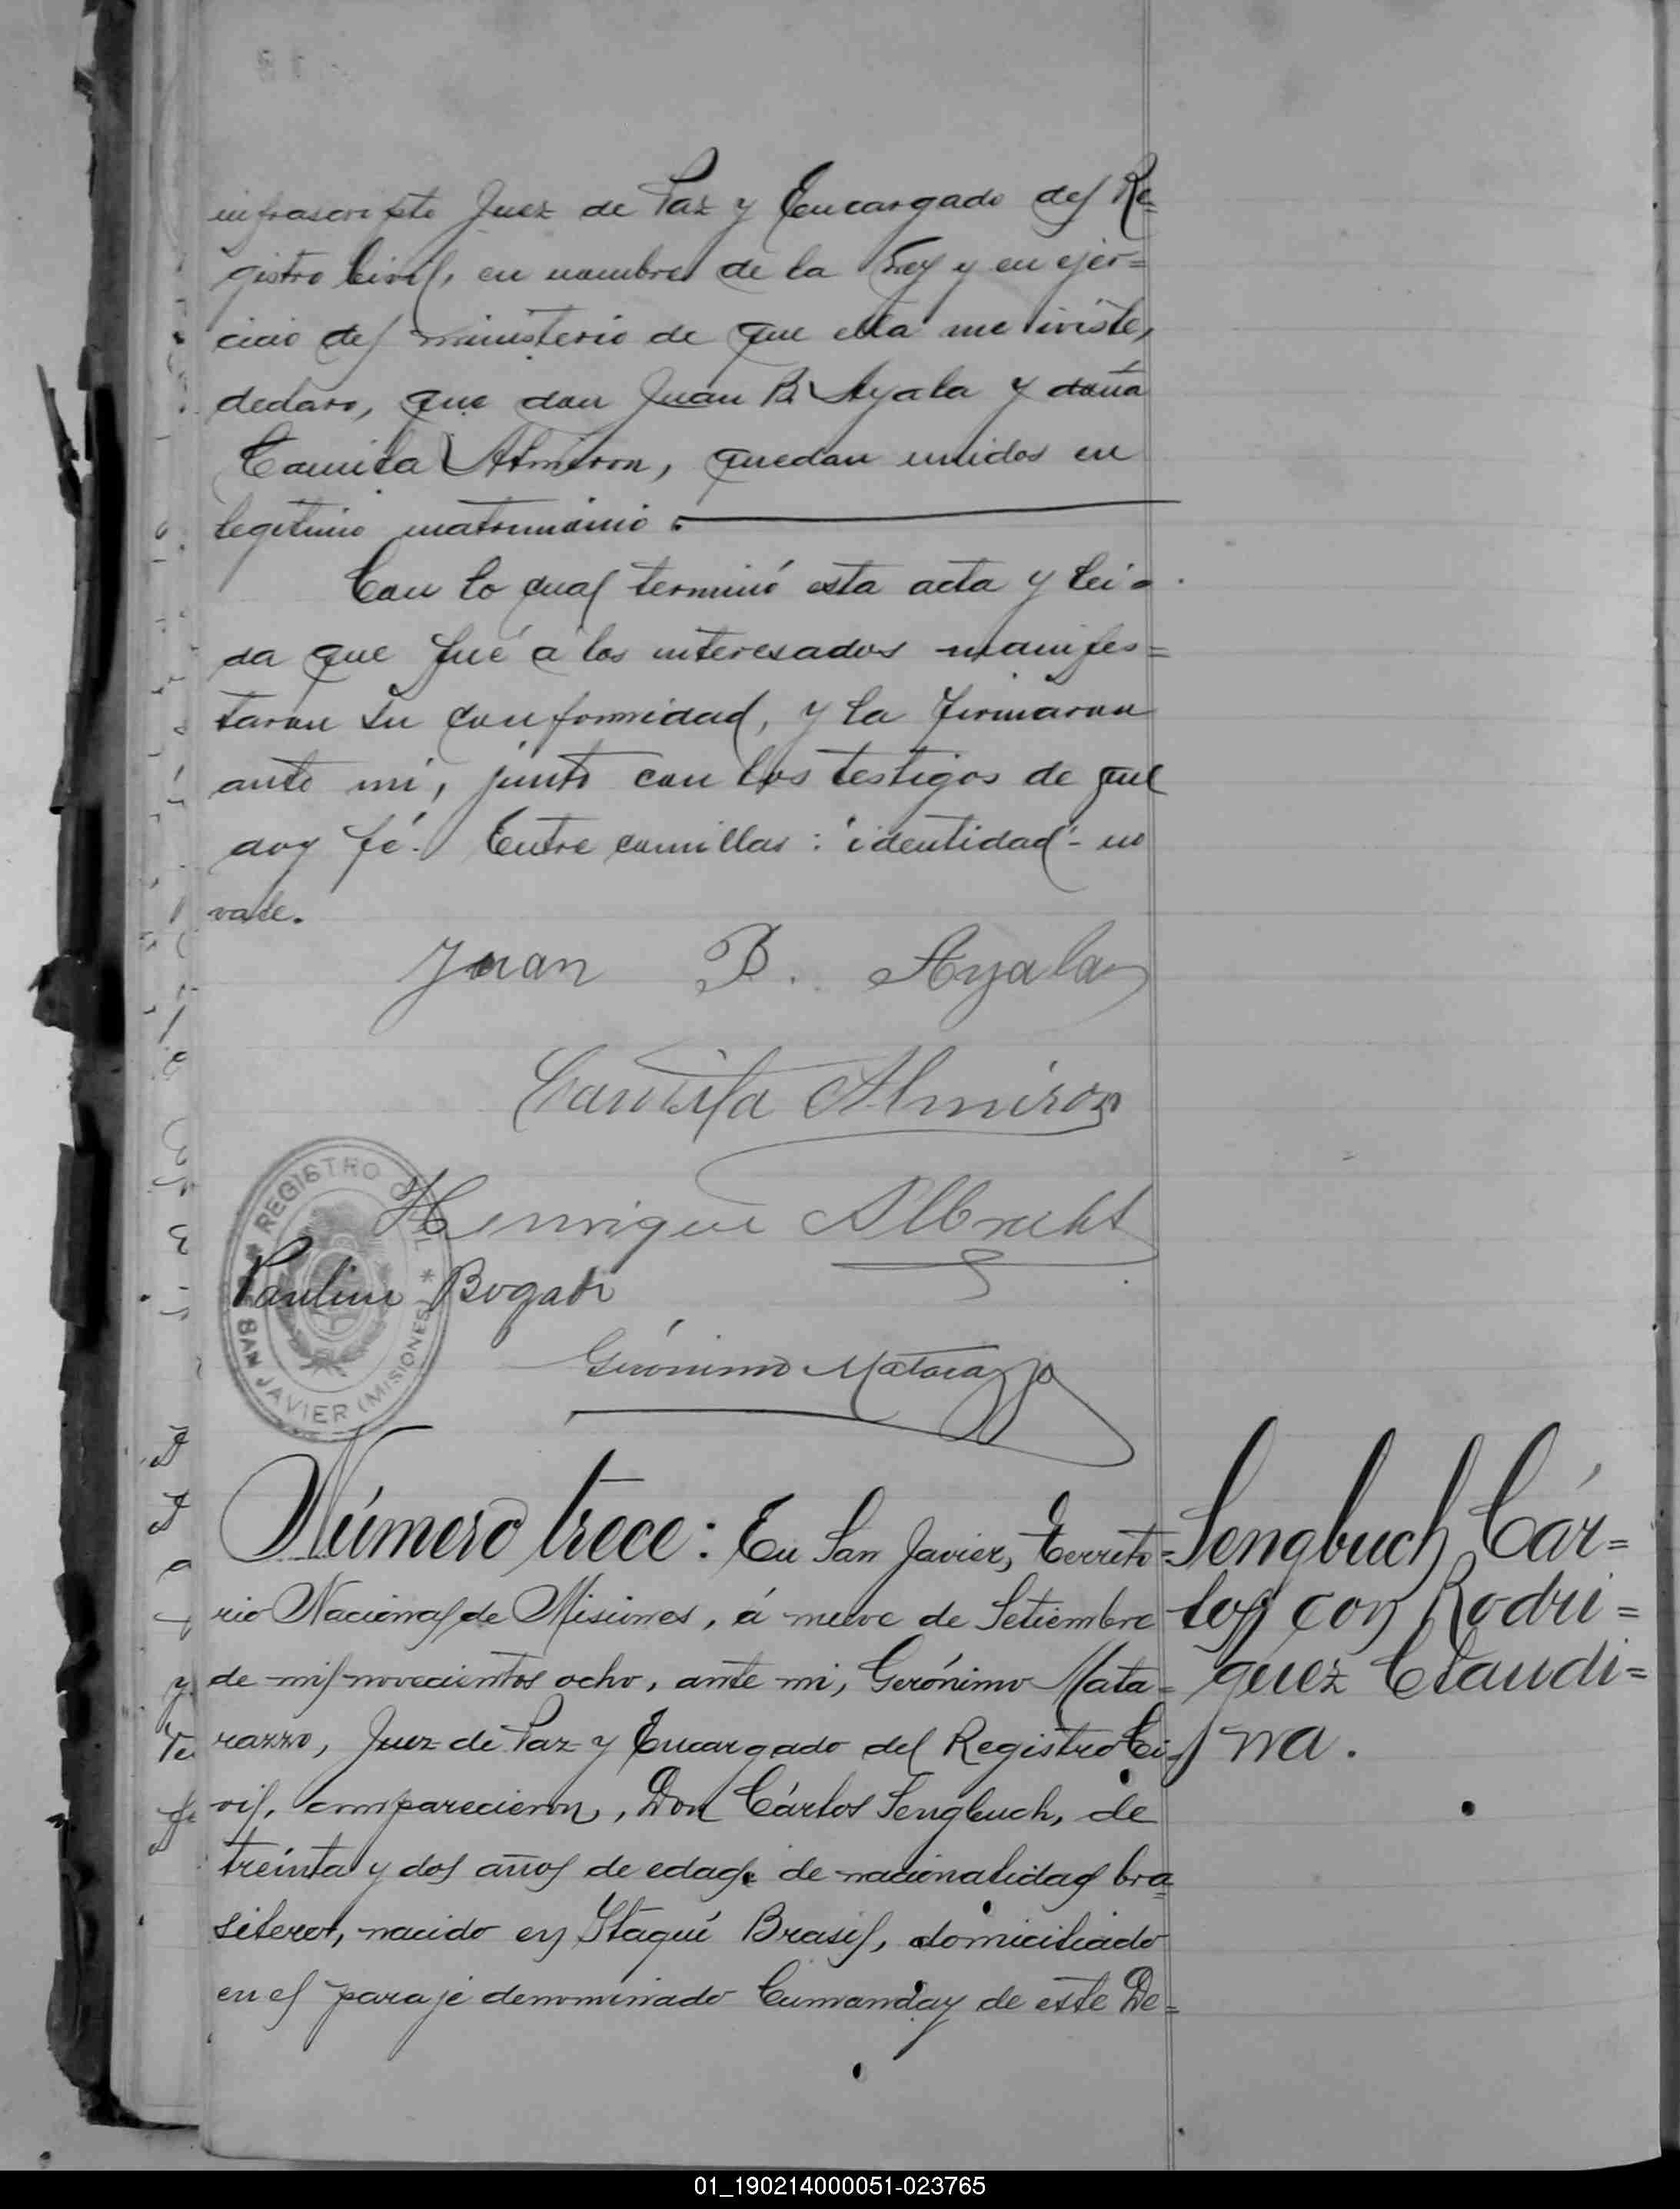 infrascripto Juez de Paz y Encargado del Re=
gistro Civil, en nombre de la Ley y en ejer=
cicio del ministerio de que ella me iviste,
declaro, que don Juan B. Ayala y doña
Camila Almiron, quedan unidos en
legitimo matrimonio.
Con lo cual terminó esta acta y lei=
da que fué a los interesados manifes=
taron su conformidad, y la firmaron
ante mi, junto con los testigos de que
doy fé. Entre comillas: "identidad" - no
vale.
Juan B. Ayala
Camila Almiron
Henrique Albrecht
REGISTRO CIVIL * SAN JAVIER (MISIONES) *
Paulino Bogado
Gerónimo Matarazzo
Número trece: En San Javier, Territo=
rio Nacional de Misiones, á nueve de Setiembre
de mil novecientos ocho, ante mi, Gerónimo Mata=
razzo, Juez de Paz y Encargado del Registro Ci=
vil, comparecieron, Don Cárlos Sengbuch, de
treinta y dos años de edad, de nacionalidad bra=
silero, nacido en Itaqui Brasil, domiciliado
en el paraje denominado Cumanday de este De=
Sengbuch Cár=
los con Rodri=
guez Claudi=
na.
01_190214000051-023765